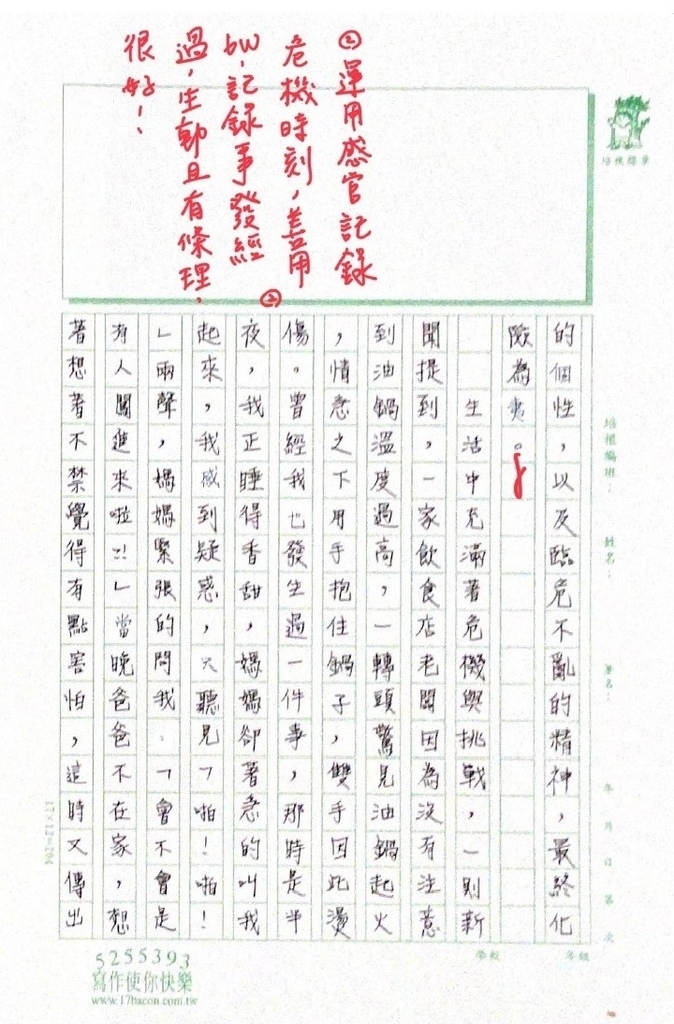 ②運用感官記錄
危機時刻，善用
5W，記錄事發經
過，生動且有條理，
很好！
②
培根文學
培根編班：
姓名：
年 月 日 第 次
的個性，以及臨危不亂的精神，最終化
險為夷。
生活中充滿著危機與挑戰，一則新
聞提到，一家飲食店老闆因為沒有注意
到油鍋溫度過高，一轉頭驚見油鍋起火
，情急之下用手抱住鍋子，雙手因此燙
傷。曾經我也發生過一件事，那時是半
夜，我正睡得香甜，媽媽卻著急的叫我
起來，我感到疑惑，只聽見「啪！啪！
」兩聲，媽媽緊張的問我：「會不會是
有人闖進來啦？！」當晚爸爸不在家，想
著想著不禁覺得有點害怕，這時又傳出
17×12=204
學校
年級
5255393
寫作使你快樂
www.17bacon.com.tw